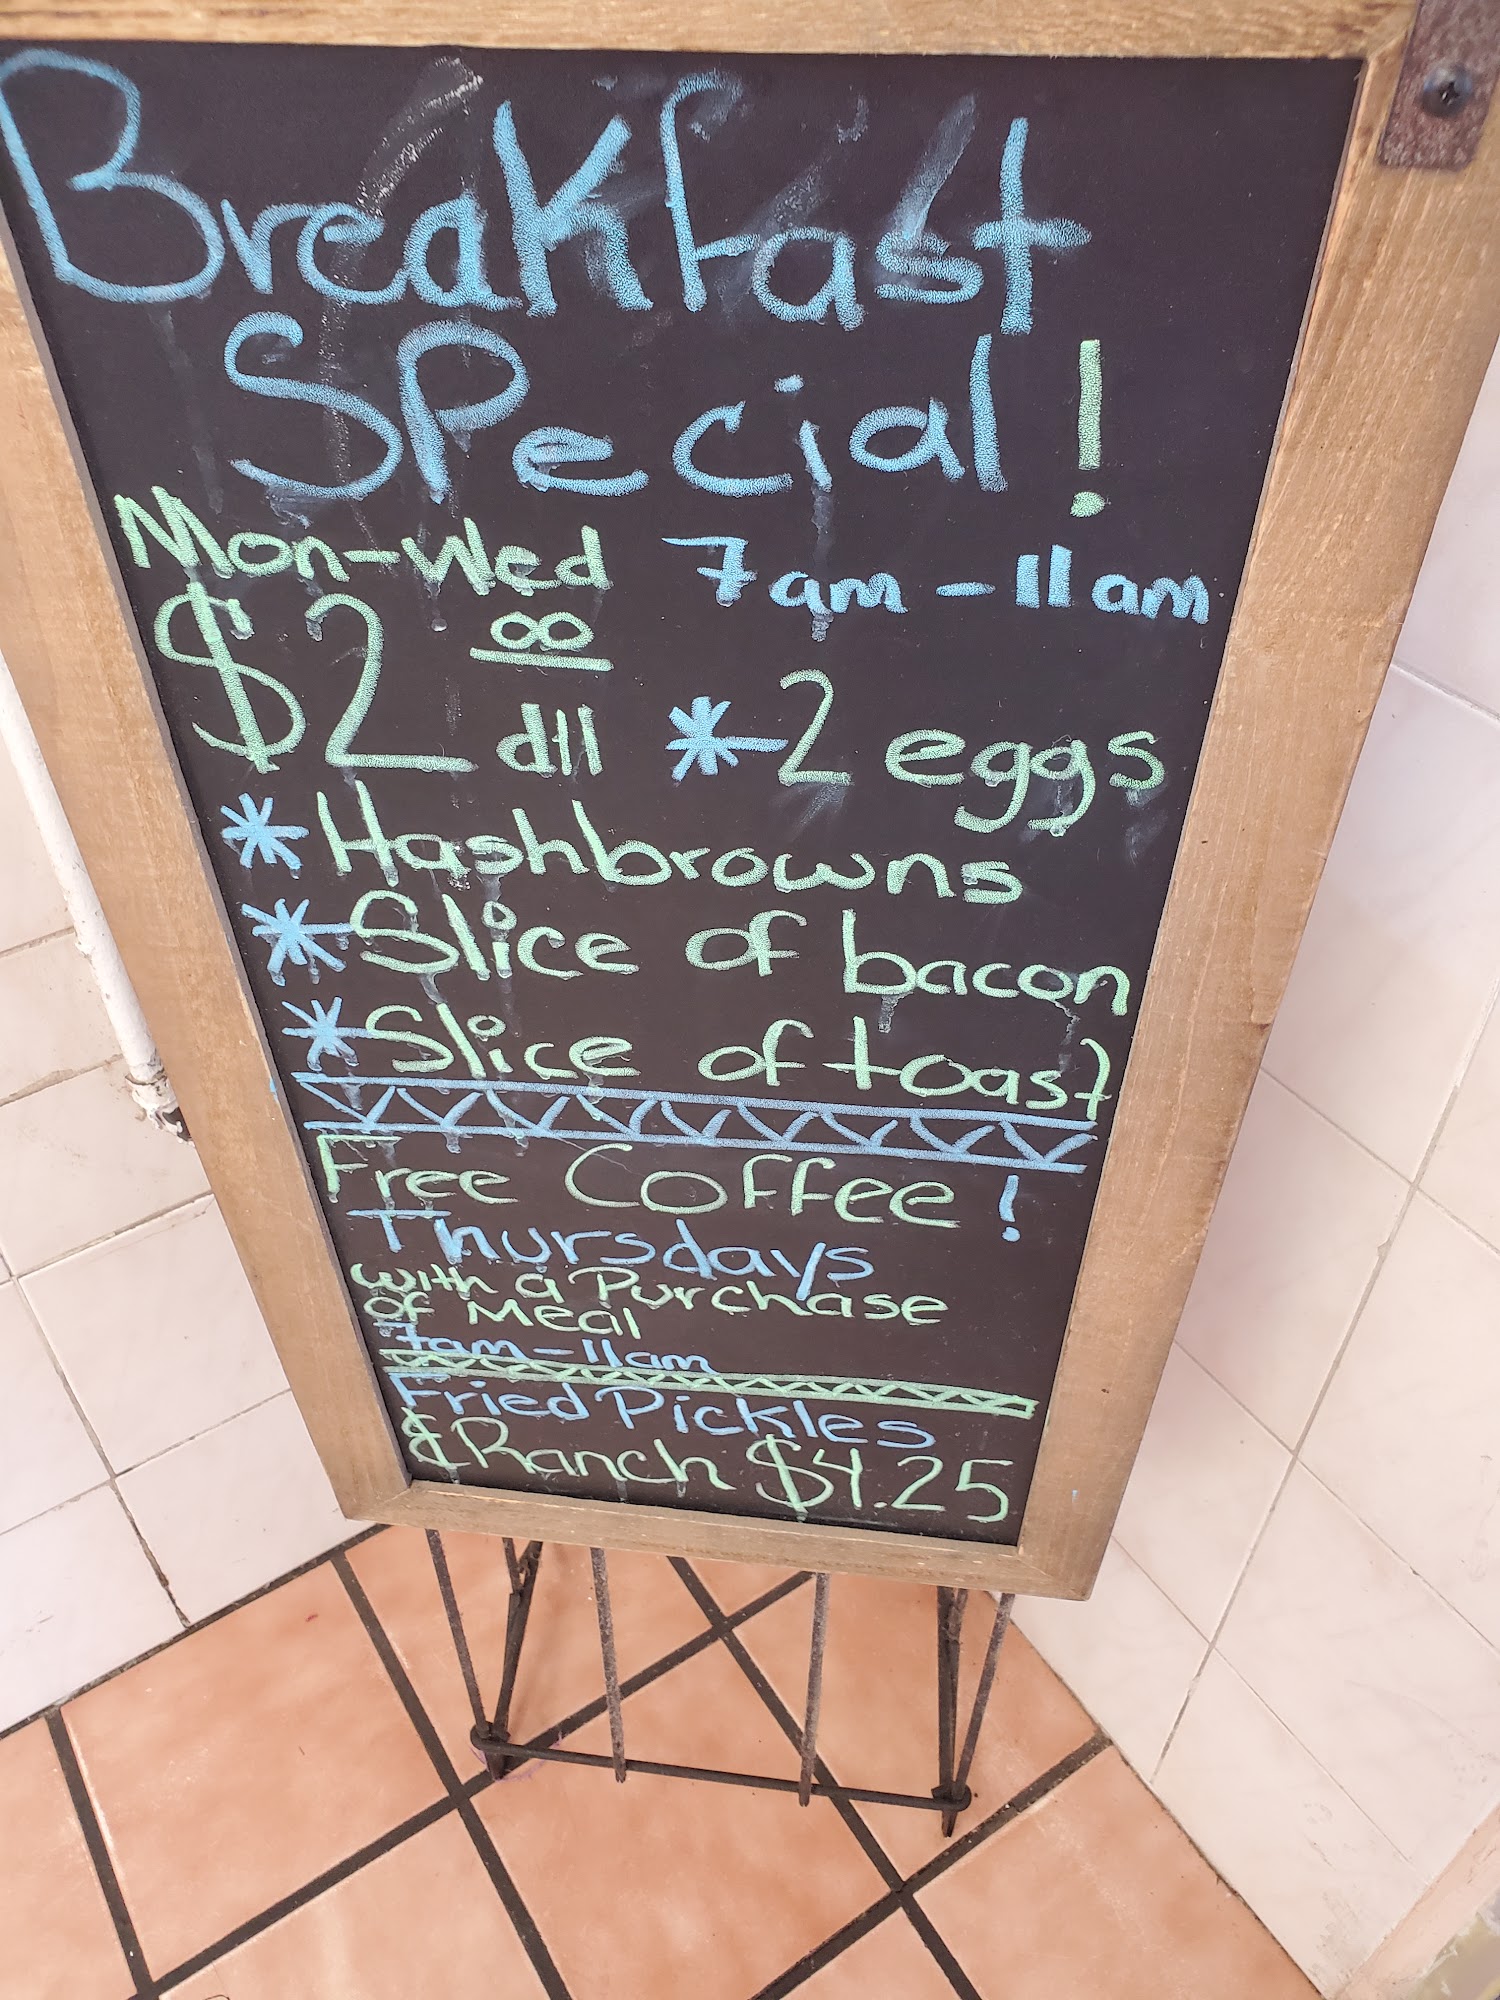 Breakfast
Special!
Mon-Wed 7am-11am
$2 00 dll *2 eggs
*Hashbrowns
*Slice of bacon
*Slice of toast
Free Coffee!
Thursdays
with a Purchase
of Meal
7am-11am
Fried Pickles
& Ranch $4.25